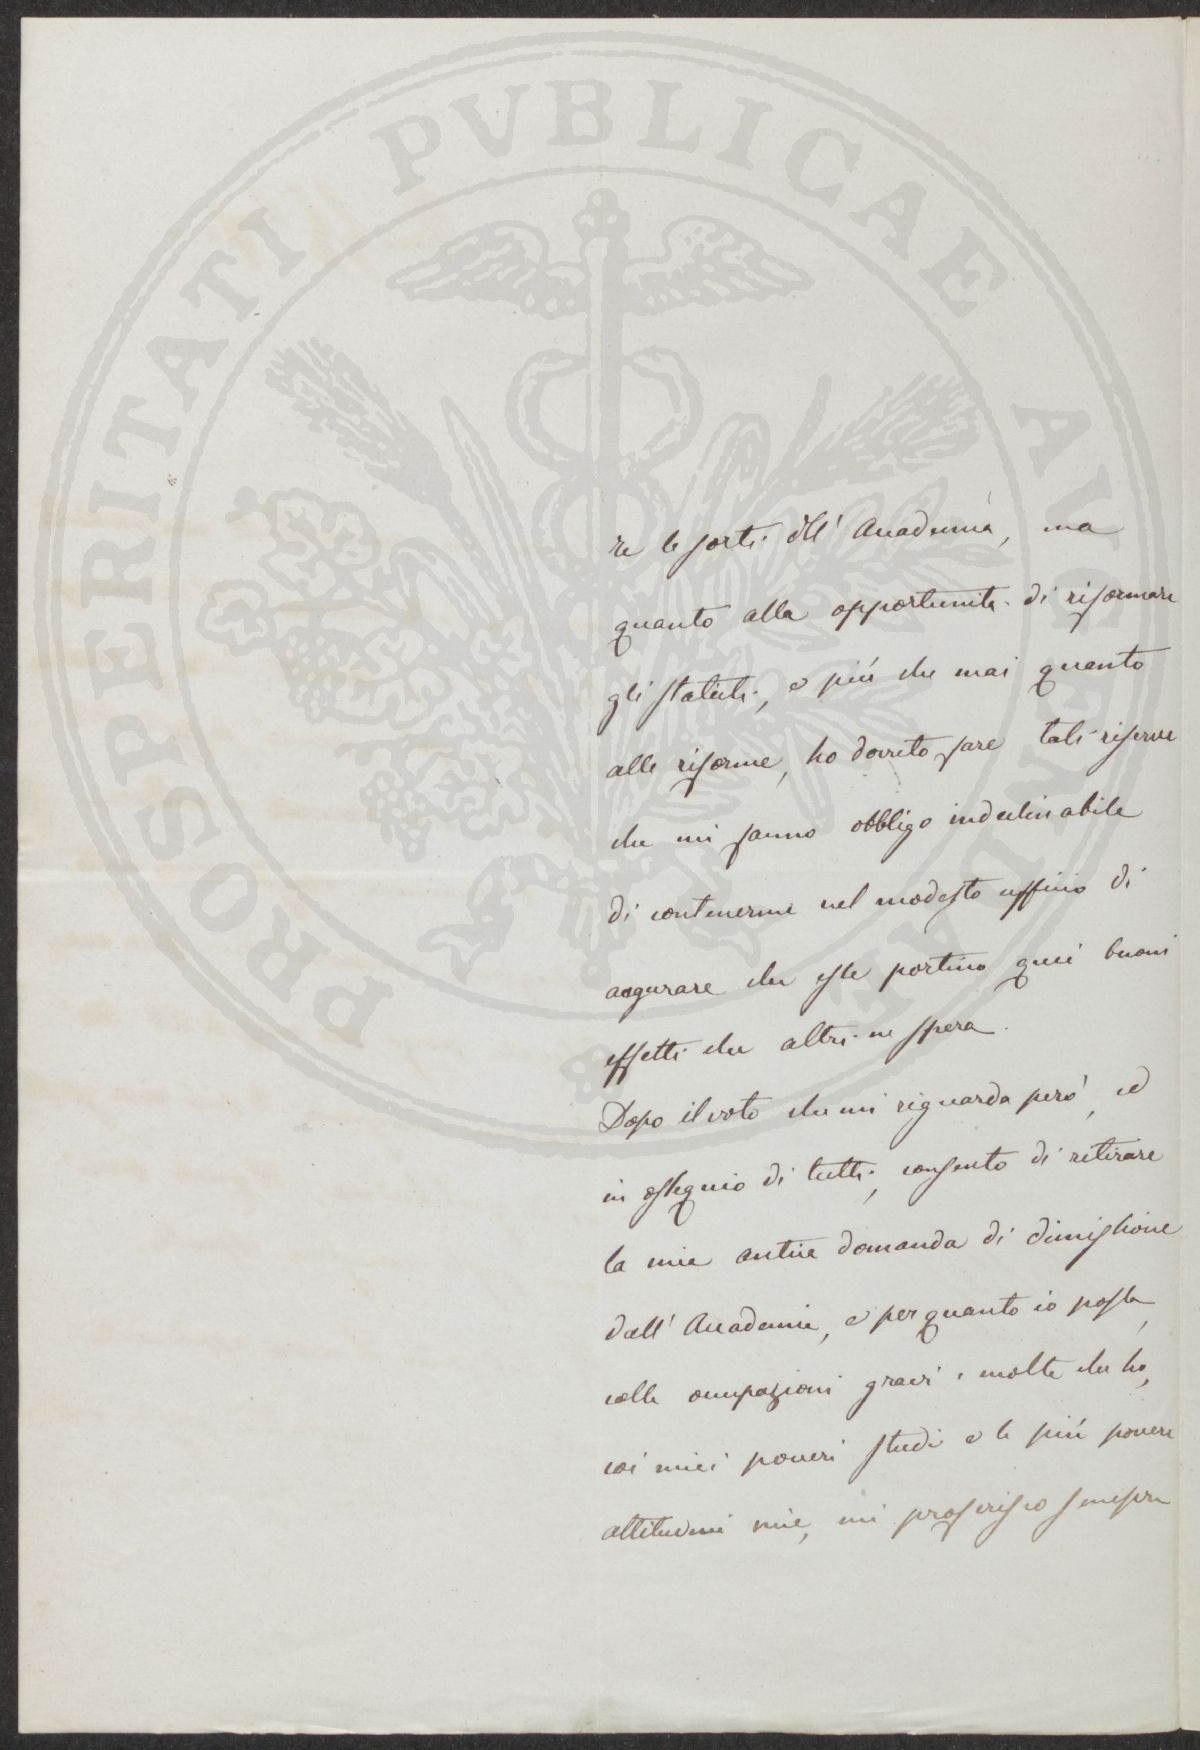 PROSPERITATI PVBLICAE AVGENDAE
re le sorti dell' Accademia, ma
quanto alla opportunità di riformare
gli statuti, e più che mai quanto
alle riforme, ho dovuto fare tali riserve
che mi fanno obbligo indeclinabile
di contenermi nel modesto ufficio di
augurare che esse portino quei buoni
effetti che altri ne spera.
Dopo il voto che mi riguarda però, ed
in ossequio di tutti, consento di ritirare
la mia antica domanda di dimissione
dall' Accademia, e per quanto io possa,
colle occupazioni gravi e molte che ho,
coi miei poveri studi e le più povere
attitudini mie, mi profferisco sempre